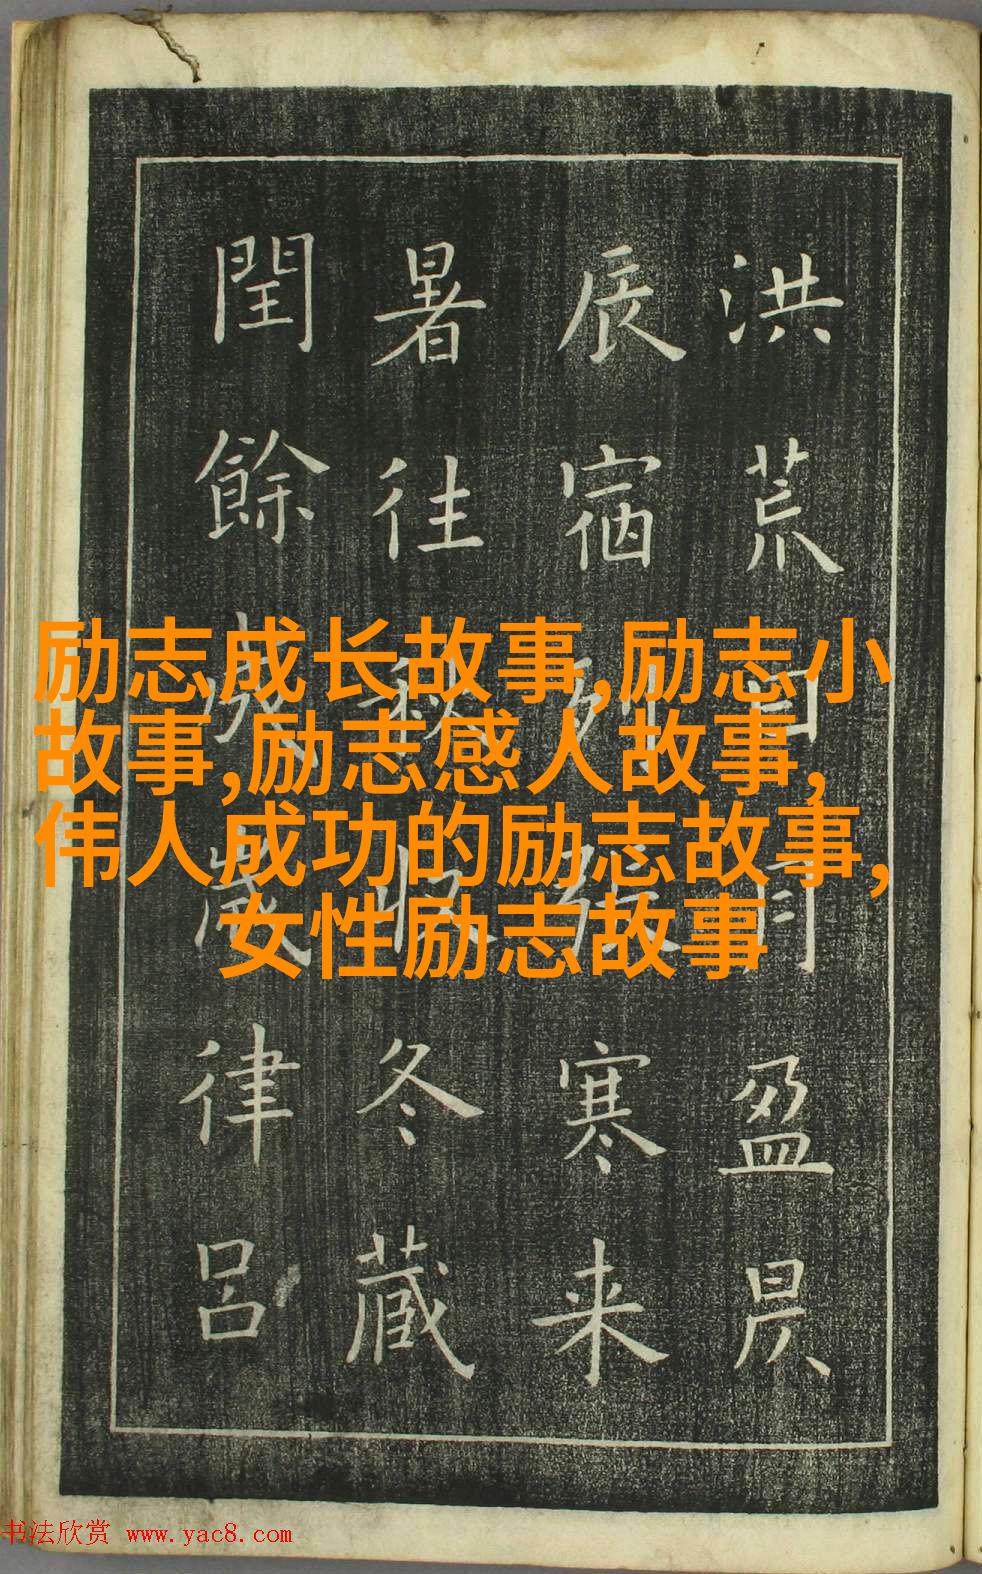 洪荒日月盈昃
辰宿列張寒来
暑往秋收冬藏
閏餘成歲律呂
励志成长故事,励志小
故事,励志感人故事,
伟人成功的励志故事,
女性励志故事
书法欣赏 www.yac8.com